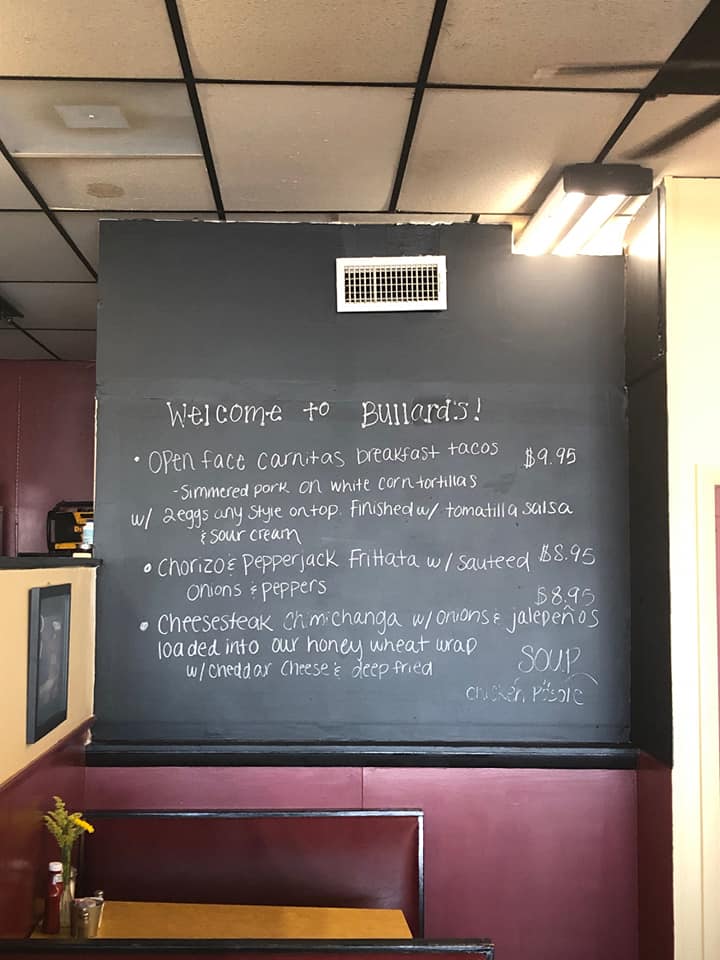 Welcome to Bullard's!
• Open face carnitas breakfast tacos $9.95
- Simmered pork on white corn tortillas
w/ 2 eggs any style on top. Finished w/ tomatilla salsa
& sour cream
• Chorizo & Pepperjack Frittata w/ sauteed $8.95
onions & peppers
$8.95
• Cheesesteak Chimichanga w/ onions & jalepeños
loaded into our honey wheat wrap
w/ cheddar cheese & deep fried
SOUP
chicken, Posole